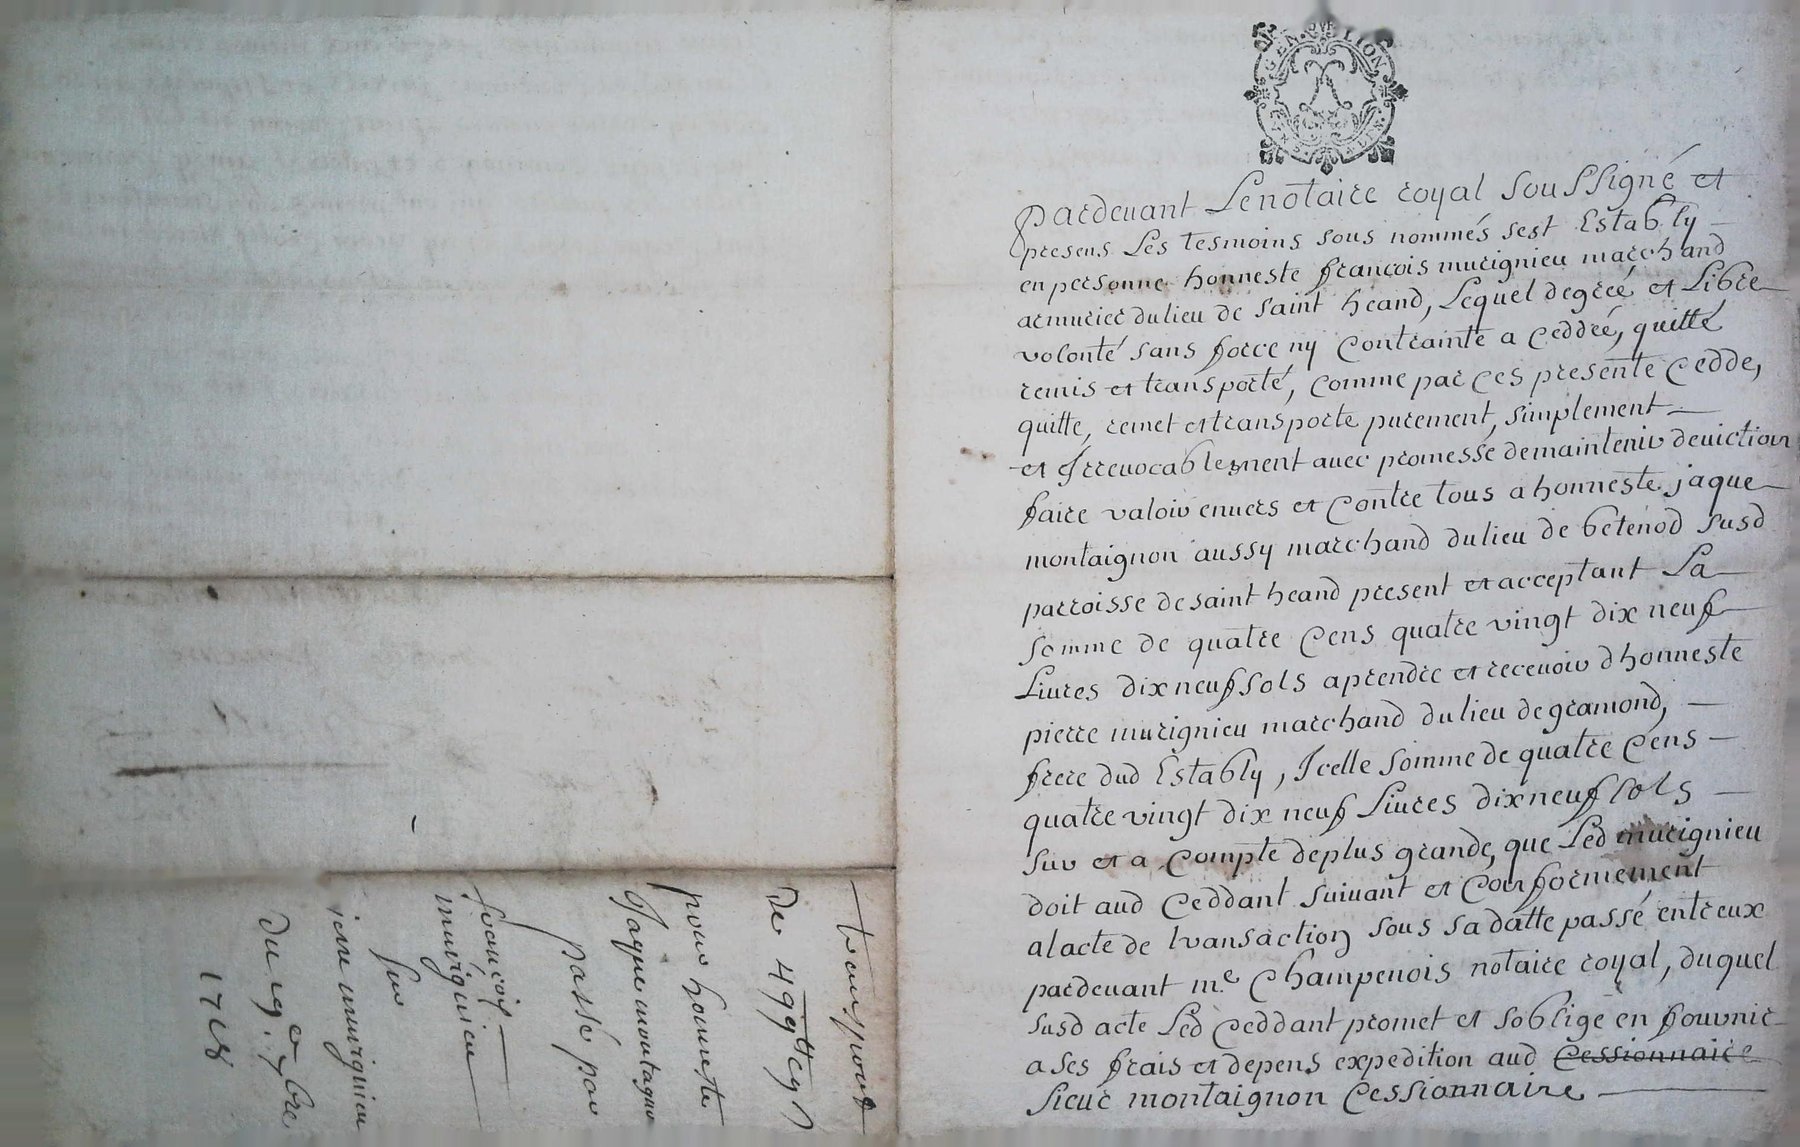 GEN. DE LION
pardeuant Le notaire royal soussigné et
presens Les tesmoins sous nommés sest Estably
en personne honneste françois murignieu marchand
armurier du lieu de saint heand, Lequel de gréé et Libre
volonté sans force ny Contrainte a Ceddéé, quitté
remis et transporté, Comme par Ces presente Cedde,
quitte, remet et transporte purement, simplement
et Jrreuocablement auec promesse de maintenir deuiction
faire valoir enuers et Contre tous a honneste jaque
montaignon aussy marchand du lieu de betenod susd
parroisse de saint heand present et acceptant La
somme de quatre Cens quatre vingt dix neuf
Liures dix neuf sols a prendre et receuoir dhonneste
pierre murignieu marchand du lieu de gramond,
frere dud Estably, Jcelle somme de quatre Cens
quatre vingt dix neuf Liures dix neuf sols
sur et a Compte de plus grande, que Led murignieu
doit aud Ceddant suiuant et Conformement
a lacte de transaction sous sa datte passé entre eux
pardeuant me Champenois notaire royal, duquel
susd acte Led Ceddant promet et soblige en fournir
a ses frais et depens expedition aud Cessionnaire
sieur montaignon Cessionnaire
transport
De 499
pour honneste
Jaque montagno
passé par
françois
murignieu
sur
murignieu
Du 19